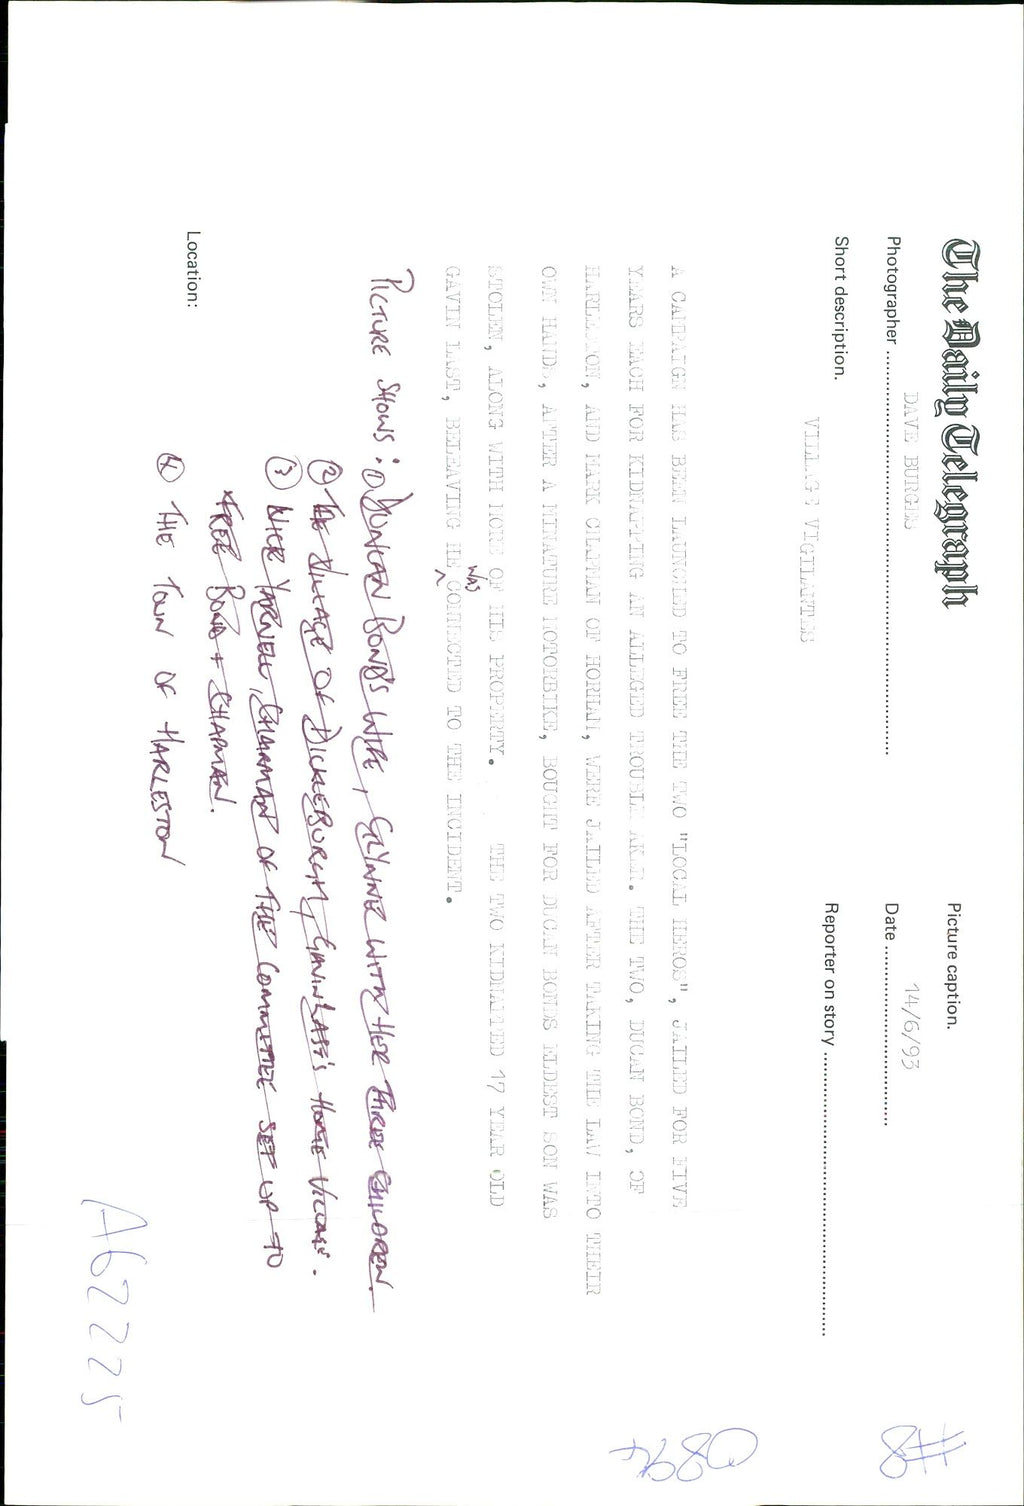 The Daily Telegraph
Picture caption.
Photographer DAVE BURGES
Date 14/6/93
Short description.
Reporter on story
VILLAGE VIGILANTES
A CAMPAIGN HAS BEEN LAUNCHED TO FREE THE TWO "LOCAL HEROS", JAILED FOR FIVE
YEARS EACH FOR KIDNAPPING AN ALLEGED TROUBLEMAKER. THE TWO, DUCAN BOND, OF
HARLESTON, AND MARK CLAPMAN OF HORHAM, WERE JAILED AFTER TAKING THE LAW INTO THEIR
OWN HANDS, AFTER A MINATURE MOTORBIKE, BOUGHT FOR DUCAN BONDS ELDEST SON WAS
STOLEN, ALONG WITH MORE OF HIS PROPERTY. THE TWO KIDNAPPED 17 YEAR OLD
GAVIN LAST, BELEAVING HE WAS CONNECTED TO THE INCIDENT.
PICTURE SHOWS: ① DUNCAN BOND'S WIFE, GLYNNE WITH HER THREE CHILDREN.
② THE VILLAGE OF DICKLEBURGH, GAVIN LAST'S HOME VILLAGE.
③ NICK YARNELL, CHAIRMAN OF THE COMMITTEE SET UP TO
FREE BOND + CHAPMAN.
④ THE TOWN OF HARLESTON
Location:
A62225
#8